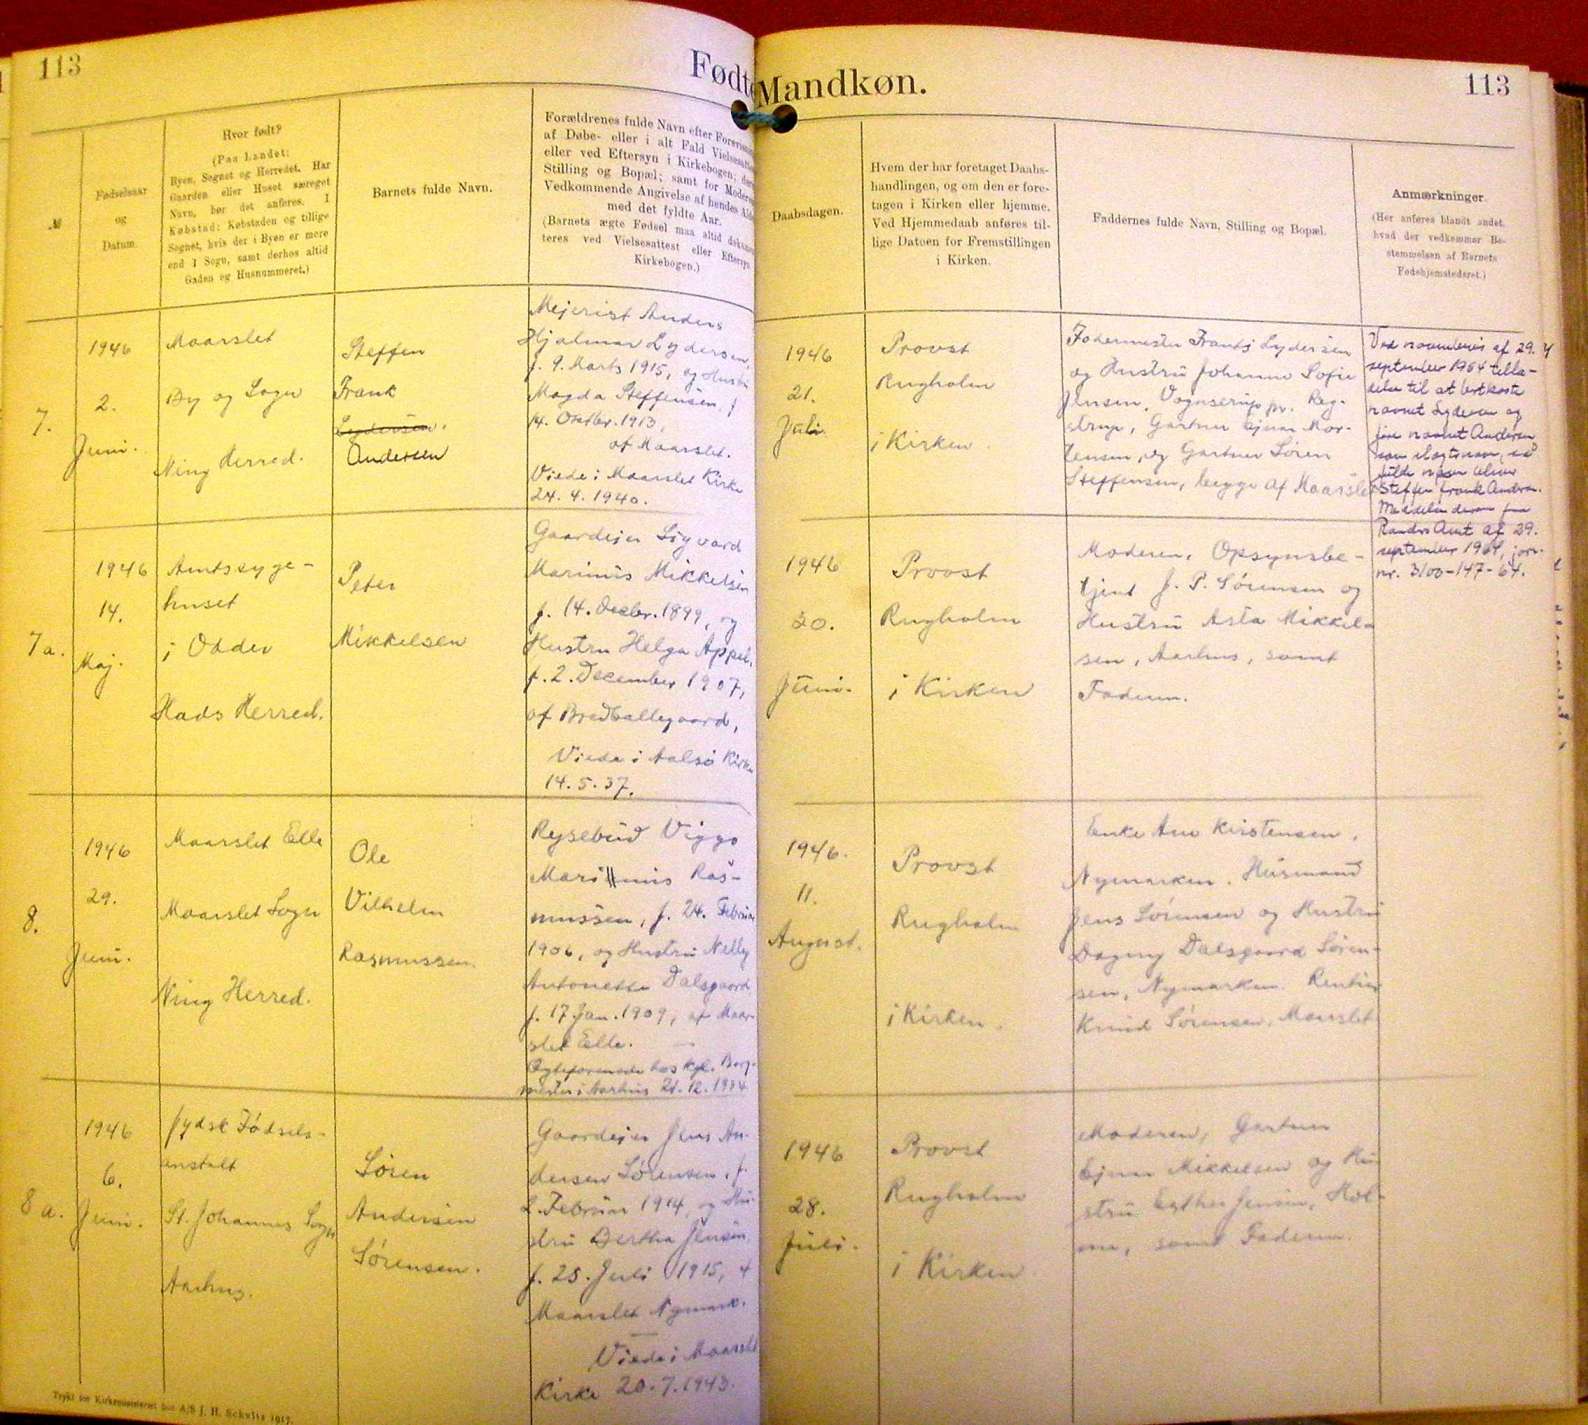 113
Fødte
Mandkøn.
113
№
Fødselsaar
og
Datum.
Hvor født?
(Paa Landet:
Byen, Sognet og Herredet. Har
Gaarden eller Huset særeget
Navn, bør det anføres. I
Købstad: Købstaden og tillige
Sognet, hvis der i Byen er mere
end 1 Sogn, samt derhos altid
Gaden og Husnummeret.)
Barnets fulde Navn.
Forældrenes fulde Navn efter
af Døbe- eller i alt Fald
eller ved Eftersyn i Kirkebogen;
Stilling og Bopæl; samt for
Vedkommende Angivelse af hendes
med det fyldte Aar.
(Barnets ægte Fødsel maa altid
teres ved Vielsesattest eller
Kirkebogen.)
Daabsdagen.
Hvem der har foretaget Daabs-
handlingen, og om den er fore-
tagen i Kirken eller hjemme.
Ved Hjemmedaab anføres til-
lige Datoen for Fremstillingen
i Kirken.
Faddernes fulde Navn, Stilling og Bopæl.
Anmærkninger.
(Her anføres blandt andet,
hvad der vedkommer Be-
stemmelsen af Barnets
Fødehjemstedsret.)
7.
1946
2.
Juni.
Maarslet
By og Sogn
Ning Herred.
Steffen
Frank
Lydersen.
Andersen
Mejerist Anders
Hjalmar Lydersen,
f. 9. Marts 1915, og Hustru
Magda Steffensen, f.
14. Oktbr. 1913,
af Maarslet.
Viede i Maarslet Kirke
24. 4. 1940.
1946
21.
Juli
Provst
Rugholm
i Kirken.
Fodermester Frants Lydersen
og Hustru Johanne Sofie
Jensen, Vognserup pr. Reg-
strup, Gartner Ejnar Mor-
tensen, og Gartner Søren
Steffensen, begge af Maarslet
Ved navnebevis af 29.
september 1964 tilla-
delse til at bortkaste
navnet Lydersen og
navnet Andersen
som slægtsnavn, så
fulde navn bliver
Steffen Frank Andersen.
Meddelelse derom fra
Randers Amt af 29.
september 1964, jour-
nr. 3100-147-64.
7a.
1946
14.
Maj.
Amtssyge-
huset
i Odder
Hads Herred.
Peter
Mikkelsen
Gaardejer Sigvard
Marinus Mikkelsen
f. 14. 1899, og
Hustru Helga Appel,
f. 2. December 1907,
af Bredballegaard,
Viede i Aalsø Kirke
14. 5. 37.
1946
20.
Juni.
Provst
Rugholm
i Kirken
Moderen, Opsynsbe-
tjent J. P. Sørensen og
Hustru Asta Mikkel-
sen, Aarhus, samt
Faderen.
8.
1946
29.
Juni.
Maarslet Elle
Maarslet Sogn
Ning Herred.
Ole
Vilhelm
Rasmussen.
Rysebud Viggo
Marinus Ras-
mussen, f. 24. Februar
1906, og Hustru Nelly
Antonette Dalsgaard
f. 17. Jan. 1909, af Maar-
slet Elle.
Ægteforenede hos Kgl. Borg-
mester i Aarhus 21. 12. 1934
1946.
11.
August.
Provst
Rugholm
i Kirken.
Enke Ane Kirstensen,
Nymarken. Husmand
Jens Sørensen og Hustru
Dagny Dalsgaard Søren-
sen, Nymarken. Rentier
Knud Sørensen, Maarslet
8a.
1946
6.
Juni.
Jydsk Fødsels-
anstalt
St. Johannes Sogn
Aarhus.
Søren
Andersen
Sørensen.
Gaardejer Jens An-
dersen Sørensen, f.
2. Februar 1914, og Hu-
stru Bertha Jensen
f. 28. Juli 1915, af
Maarslet Nymark.
Viede i Maarslet
Kirke 20. 7. 1943.
1946
28.
Juli.
Provst
Rugholm
i Kirken
Moderen, Gartner
Ejnar Mikkelsen og Hu-
stru Esther Jensen, Hol-
me, samt Faderen.
Trykt for Kirkeministeriet hos A/S J. H. Schultz 1917.